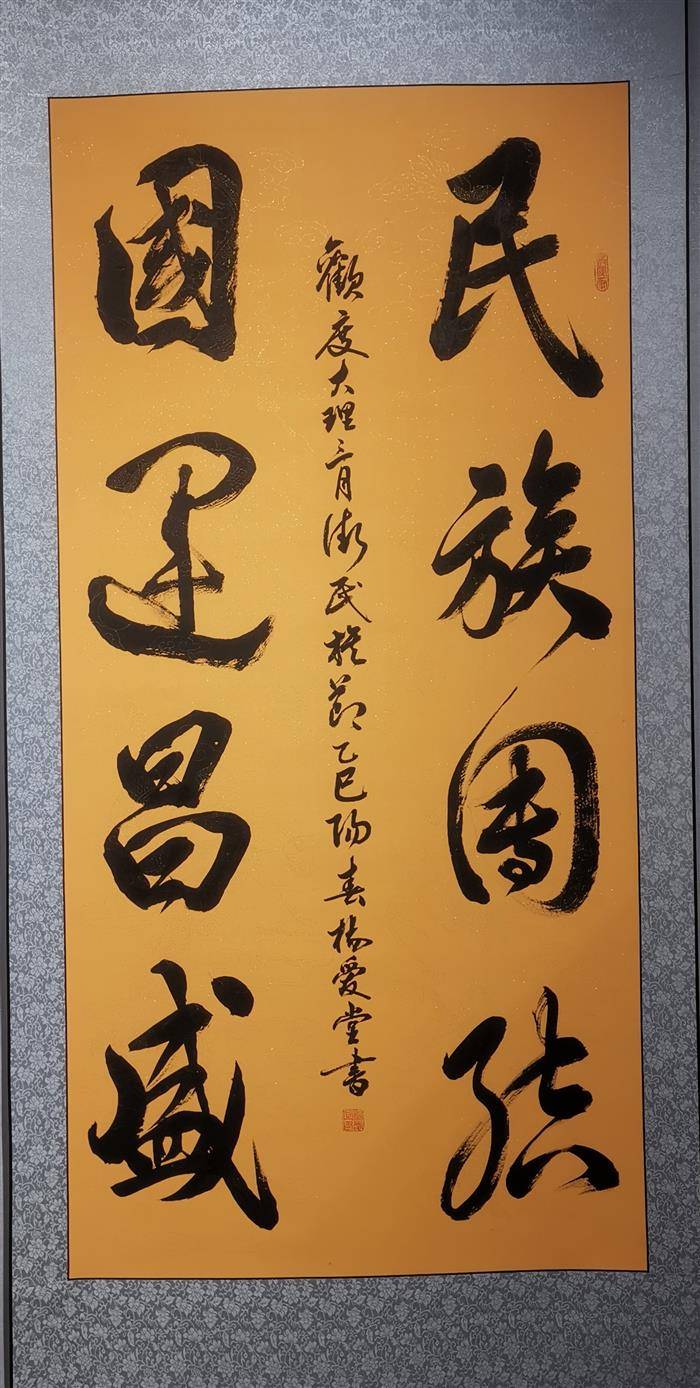 民族團结
國运昌盛
歡度大理三月街民族節乙巳陽春楊愛堂書